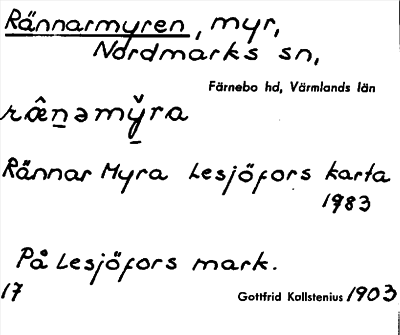 Rännarmyren, myr,
Nordmarks sn,
Färnebo hd, Värmlands län
ræ̂n̠əmy̠̌ra
Rännar Myra Lesjöfors karta
1983
På Lesjöfors mark.
17 Gottfrid Kallstenius 1903